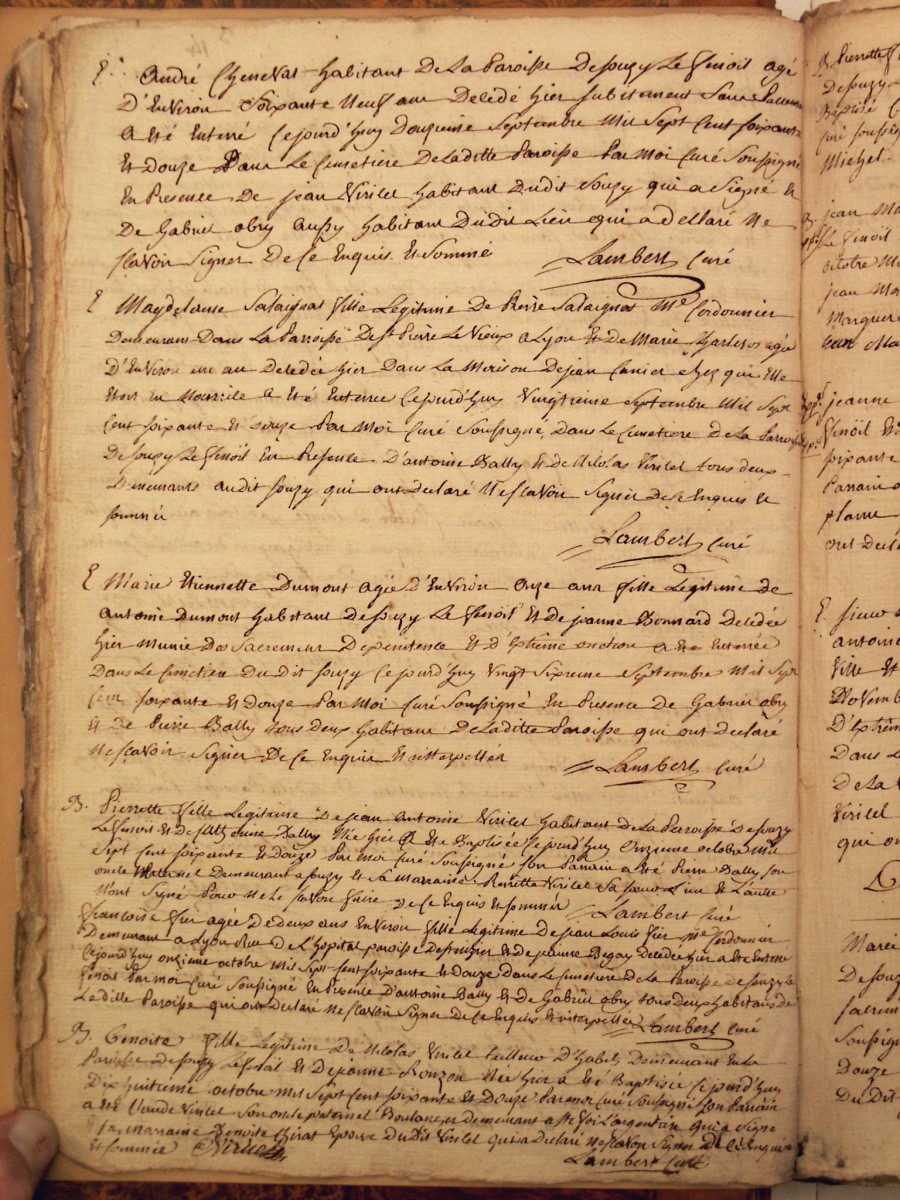 E. André Chenevat habitant De La Paroisse De Souzy Le Vinoil agé
D'Environ Soixante Neuf ans Decedé hier subitement Sans
a Eté Enterré Cejourd'huy Douzieme Septembre Mil Sept Cent soixante
Et Douze Dans Le Cimetiere De Laditte Paroisse Par Moi Curé Soussigné
En Presence De jean Viricel habitant Dudit Souzy qui a Signé &
De Gabriel obry aussy habitant Du Dit Lieu qui a declaré Ne
sçavoir Signer De Ce Enquis Et Sommé Lambert Curé
E Magdelaine Salaignat fille Legitime De Pierre Salaignat Me Cordonnier
Demeurant Dans La Parroisse De St Pierre Le Vieux a Lyon Et de Marie agée
D'Environ un an Decedée hier Dans La Maison De jean chez qui Elle
Etoit En Nourrice a Eté Enterrée Cejourd'huy Septembre Mil Sept
Cent soixante Et Douze Par Moi Curé Soussigné, Dans Le Cimetiere De La Parroisse
De Souzy Le Vinoil En Presence D'antoine Bally Et de Nicolas Viricel tous deux
Demeurants audit souzy qui ont Declaré Ne sçavoir Signer De Ce Enquis &
sommés
Lambert Curé
E Marie Etiennette Dumont agée D'Environ onze ans fille Legitime de
antoine Dumont habitant De Souzy Le Vinoil Et de jeanne Bonnard Decedée
hier Munie Des Sacremens De penitence Et D'Extrême onction a Eté Enterrée
Dans Le Cimetiere Du Dit Souzy Cejourd'huy Vingt Sixieme Septembre Mil Sept
Cent soixante Et Douze Par Moi Curé Soussigné En Presence De Gabriel obry
Et De Pierre Bally tous Deux habitans De Laditte Paroisse qui ont Declaré
Ne sçavoir Signer De Ce Enquis Et interpellés Lambert Curé
B. Pierrette fille Legitime De jean antoine Viricel habitant de La Paroisse De Souzy
Le Vinoil Et De Bally Née hier a Eté Baptisée Cejourd'huy Onzieme octobre Mil
Sept Cent soixante Et Douze Par Moi Curé Soussigné Son Parrain a Eté Pierre Bally Son
oncle Maternel Demeurant a souzy Et Sa Marraine Pierrette Viricel Sa soeur L'un Et L'autre
N'ont Signé Pour Ne Le sçavoir faire De Ce Enquis Et Sommés Lambert Curé
françoise agée De deux ans Environ fille Legitime De jean Louis Me Cordonnier
Demeurant a Lyon Rue De L'hopital paroisse De St Nizier Et De jeanne Begay Decedée hier a Eté Enterrée
Cejourd'huy onzieme octobre Mil Sept Cent soixante Et Douze Dans Le Cimetiere De La Paroisse De Souzy Le
Vinoil Par Moi Curé Soussigné En Presence D'antoine Bally Et de Gabriel obry tous Deux habitans De
La ditte Paroisse qui ont Declaré Ne sçavoir Signer De Ce Enquis Et interpellés Lambert Curé
B. Benoite fille Legitime De Nicolas Viricel tailleur D'habits Demeurant En La
Paroisse De Souzy Le Vinoil Et De jeanne Ronzon Née hier a Eté Baptisée Cejourd'huy
Dix huitieme octobre Mil Sept Cent soixante Et Douze Par Moi Curé Soussigné Son Parrain
a Eté Claude Viricel Son oncle paternel Boulanger Demeurant a Ste foi L'argentiere qui a Signé
Sa marraine Benoite Epouse Du Dit Viricel qui a declaré Ne sçavoir Signer De Ce Enquise
Et sommée Viricel Lambert Curé
B. Pierrette
De souzy
Baptisé
Curé soussigné
Michel
B. jean
Le Vinoil
octobre
jean
Marguer
jeanne
Vinoil Et
soixante
Parrain
E.
antoine
fille Et
Novemb
D'Extrêm
Dans L
De La
Viricel
qui on
Marie
De Souz
sacrem
Soussign
Douze
Du Dit